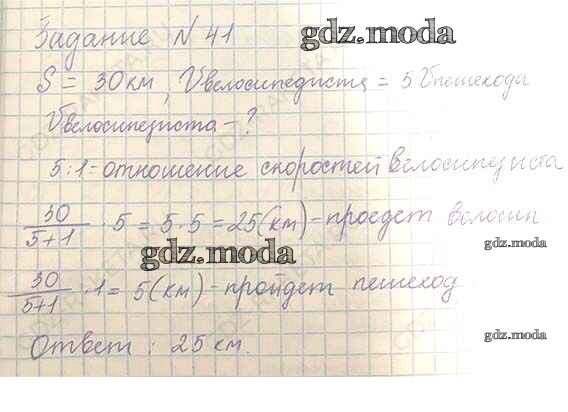 Задание N 41
gdz.moda
S = 30км, Vвелосипедиста = 5 Vпешехода
Vвелосипедиста - ?
5:1 - отношение скоростей велосипедиста
30/(5+1) · 5 = 5 · 5 = 25(км) - проедет велосип
gdz.moda
30/(5+1) · 1 = 5(км) - пройдет пешеход
gdz.moda
Ответ: 25 км.
gdz.moda